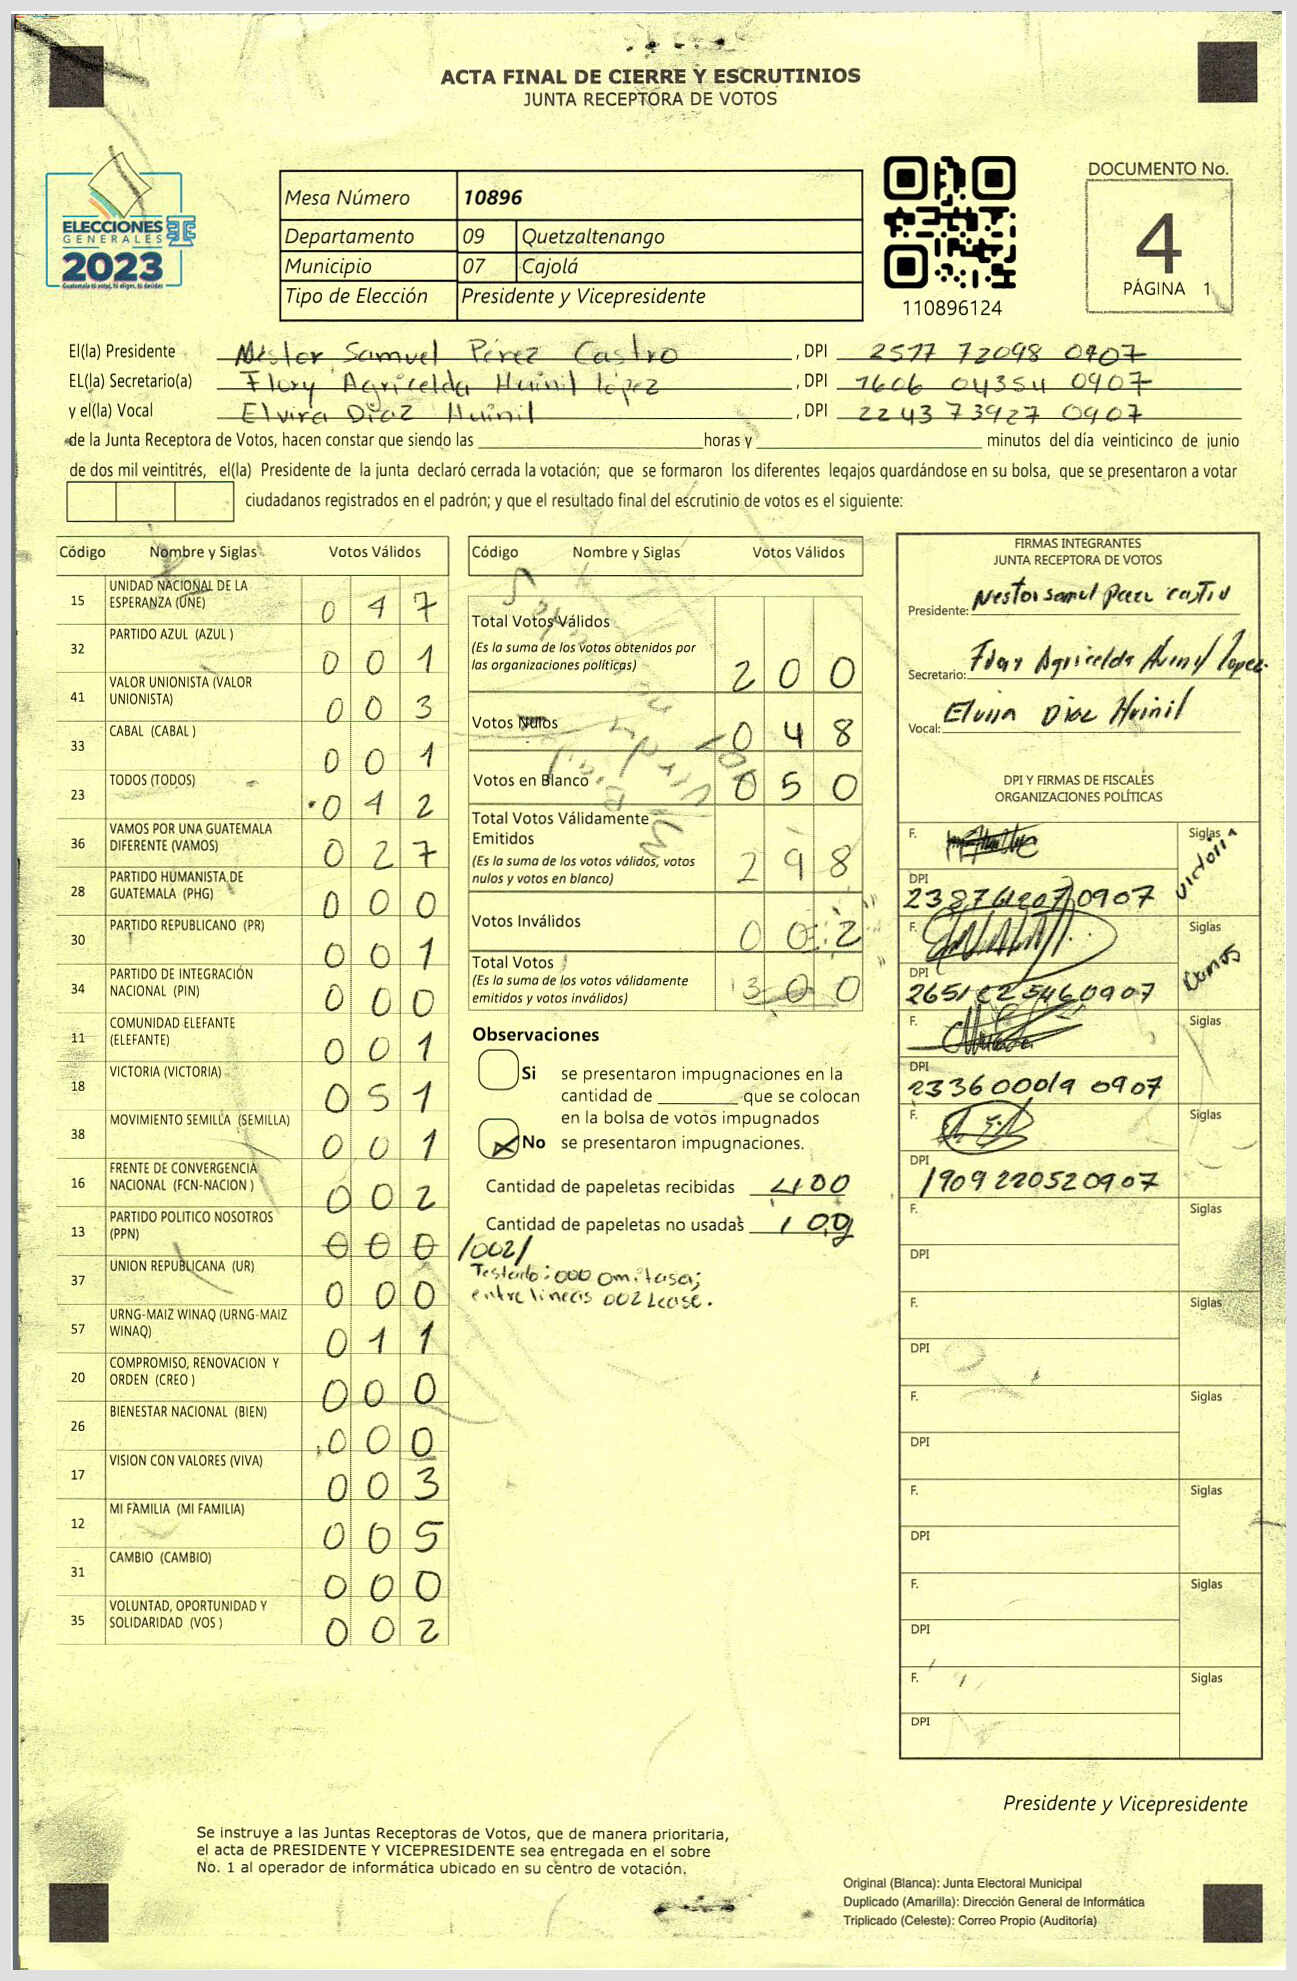 ACTA FINAL DE CIERRE Y ESCRUTINIOS
JUNTA RECEPTORA DE VOTOS
ELECCIONES
GENERALES
2023
Guatemala tú votas, tú eliges, tú decides
Mesa Número 10896
Departamento 09 Quetzaltenango
Municipio 07 Cajolá
Tipo de Elección Presidente y Vicepresidente
110896124
DOCUMENTO No.
4
PÁGINA 1
El(la) Presidente Néstor Samuel Pérez Castro, DPI 2577 72098 0907
EL(la) Secretario(a) Flory Agricelda Huinil López, DPI 1606 04354 0907
y el(la) Vocal Elvira Díaz Huinil, DPI 2243 73927 0907
de la Junta Receptora de Votos, hacen constar que siendo las horas y minutos del día veinticinco de junio
de dos mil veintitrés, el(la) Presidente de la junta declaró cerrada la votación; que se formaron los diferentes legajos guardándose en su bolsa, que se presentaron a votar
ciudadanos registrados en el padrón; y que el resultado final del escrutinio de votos es el siguiente:
Código Nombre y Siglas Votos Válidos
15 UNIDAD NACIONAL DE LA ESPERANZA (UNE) 0 4 7
32 PARTIDO AZUL (AZUL ) 0 0 1
41 VALOR UNIONISTA (VALOR UNIONISTA) 0 0 3
33 CABAL (CABAL ) 0 0 1
23 TODOS (TODOS) 0 4 2
36 VAMOS POR UNA GUATEMALA DIFERENTE (VAMOS) 0 2 7
28 PARTIDO HUMANISTA DE GUATEMALA (PHG) 0 0 0
30 PARTIDO REPUBLICANO (PR) 0 0 1
34 PARTIDO DE INTEGRACIÓN NACIONAL (PIN) 0 0 0
11 COMUNIDAD ELEFANTE (ELEFANTE) 0 0 1
18 VICTORIA (VICTORIA) 0 5 1
38 MOVIMIENTO SEMILLA (SEMILLA) 0 0 1
16 FRENTE DE CONVERGENCIA NACIONAL (FCN-NACION ) 0 0 2
13 PARTIDO POLITICO NOSOTROS (PPN) 0 0 0 /002/
37 UNION REPUBLICANA (UR) 0 0 0
57 URNG-MAIZ WINAQ (URNG-MAIZ WINAQ) 0 1 1
20 COMPROMISO, RENOVACION Y ORDEN (CREO ) 0 0 0
26 BIENESTAR NACIONAL (BIEN) 0 0 0
17 VISION CON VALORES (VIVA) 0 0 3
12 MI FAMILIA (MI FAMILIA) 0 0 5
31 CAMBIO (CAMBIO) 0 0 0
35 VOLUNTAD, OPORTUNIDAD Y SOLIDARIDAD (VOS ) 0 0 2
Código Nombre y Siglas Votos Válidos
Total Votos Válidos 2 0 0
(Es la suma de los votos obtenidos por
las organizaciones políticas)
Votos Nulos 0 4 8
Votos en Blanco 0 5 0
Total Votos Válidamente
Emitidos 2 9 8
(Es la suma de los votos válidos, votos
nulos y votos en blanco)
Votos Inválidos 0 0 2
Total Votos 3 0 0
(Es la suma de los votos válidamente
emitidos y votos inválidos)
Observaciones
Si se presentaron impugnaciones en la
cantidad de que se colocan
en la bolsa de votos impugnados
No se presentaron impugnaciones.
Cantidad de papeletas recibidas 400
Cantidad de papeletas no usadas 100
Testado: 000 omitase;
entre lineas 002 Lease.
FIRMAS INTEGRANTES
JUNTA RECEPTORA DE VOTOS
Presidente: Nestor samuel Perez castro
Secretario: Flory Agricelda Huinil Lopez
Vocal: Elvira Díaz Huinil
DPI Y FIRMAS DE FISCALES
ORGANIZACIONES POLÍTICAS
F. Siglas Victoria
DPI
F. Siglas Vamos
DPI 2651 02546 0907
F. Siglas
DPI 2336 00019 0907
F. Siglas
DPI 1909 22052 0907
F. Siglas
DPI
F. Siglas
DPI
F. Siglas
DPI
F. Siglas
DPI
F. Siglas
DPI
F. Siglas
DPI
Presidente y Vicepresidente
Se instruye a las Juntas Receptoras de Votos, que de manera prioritaria,
el acta de PRESIDENTE Y VICEPRESIDENTE sea entregada en el sobre
No. 1 al operador de informática ubicado en su centro de votación.
Original (Blanca): Junta Electoral Municipal
Duplicado (Amarilla): Dirección General de Informática
Triplicado (Celeste): Correo Propio (Auditoría)